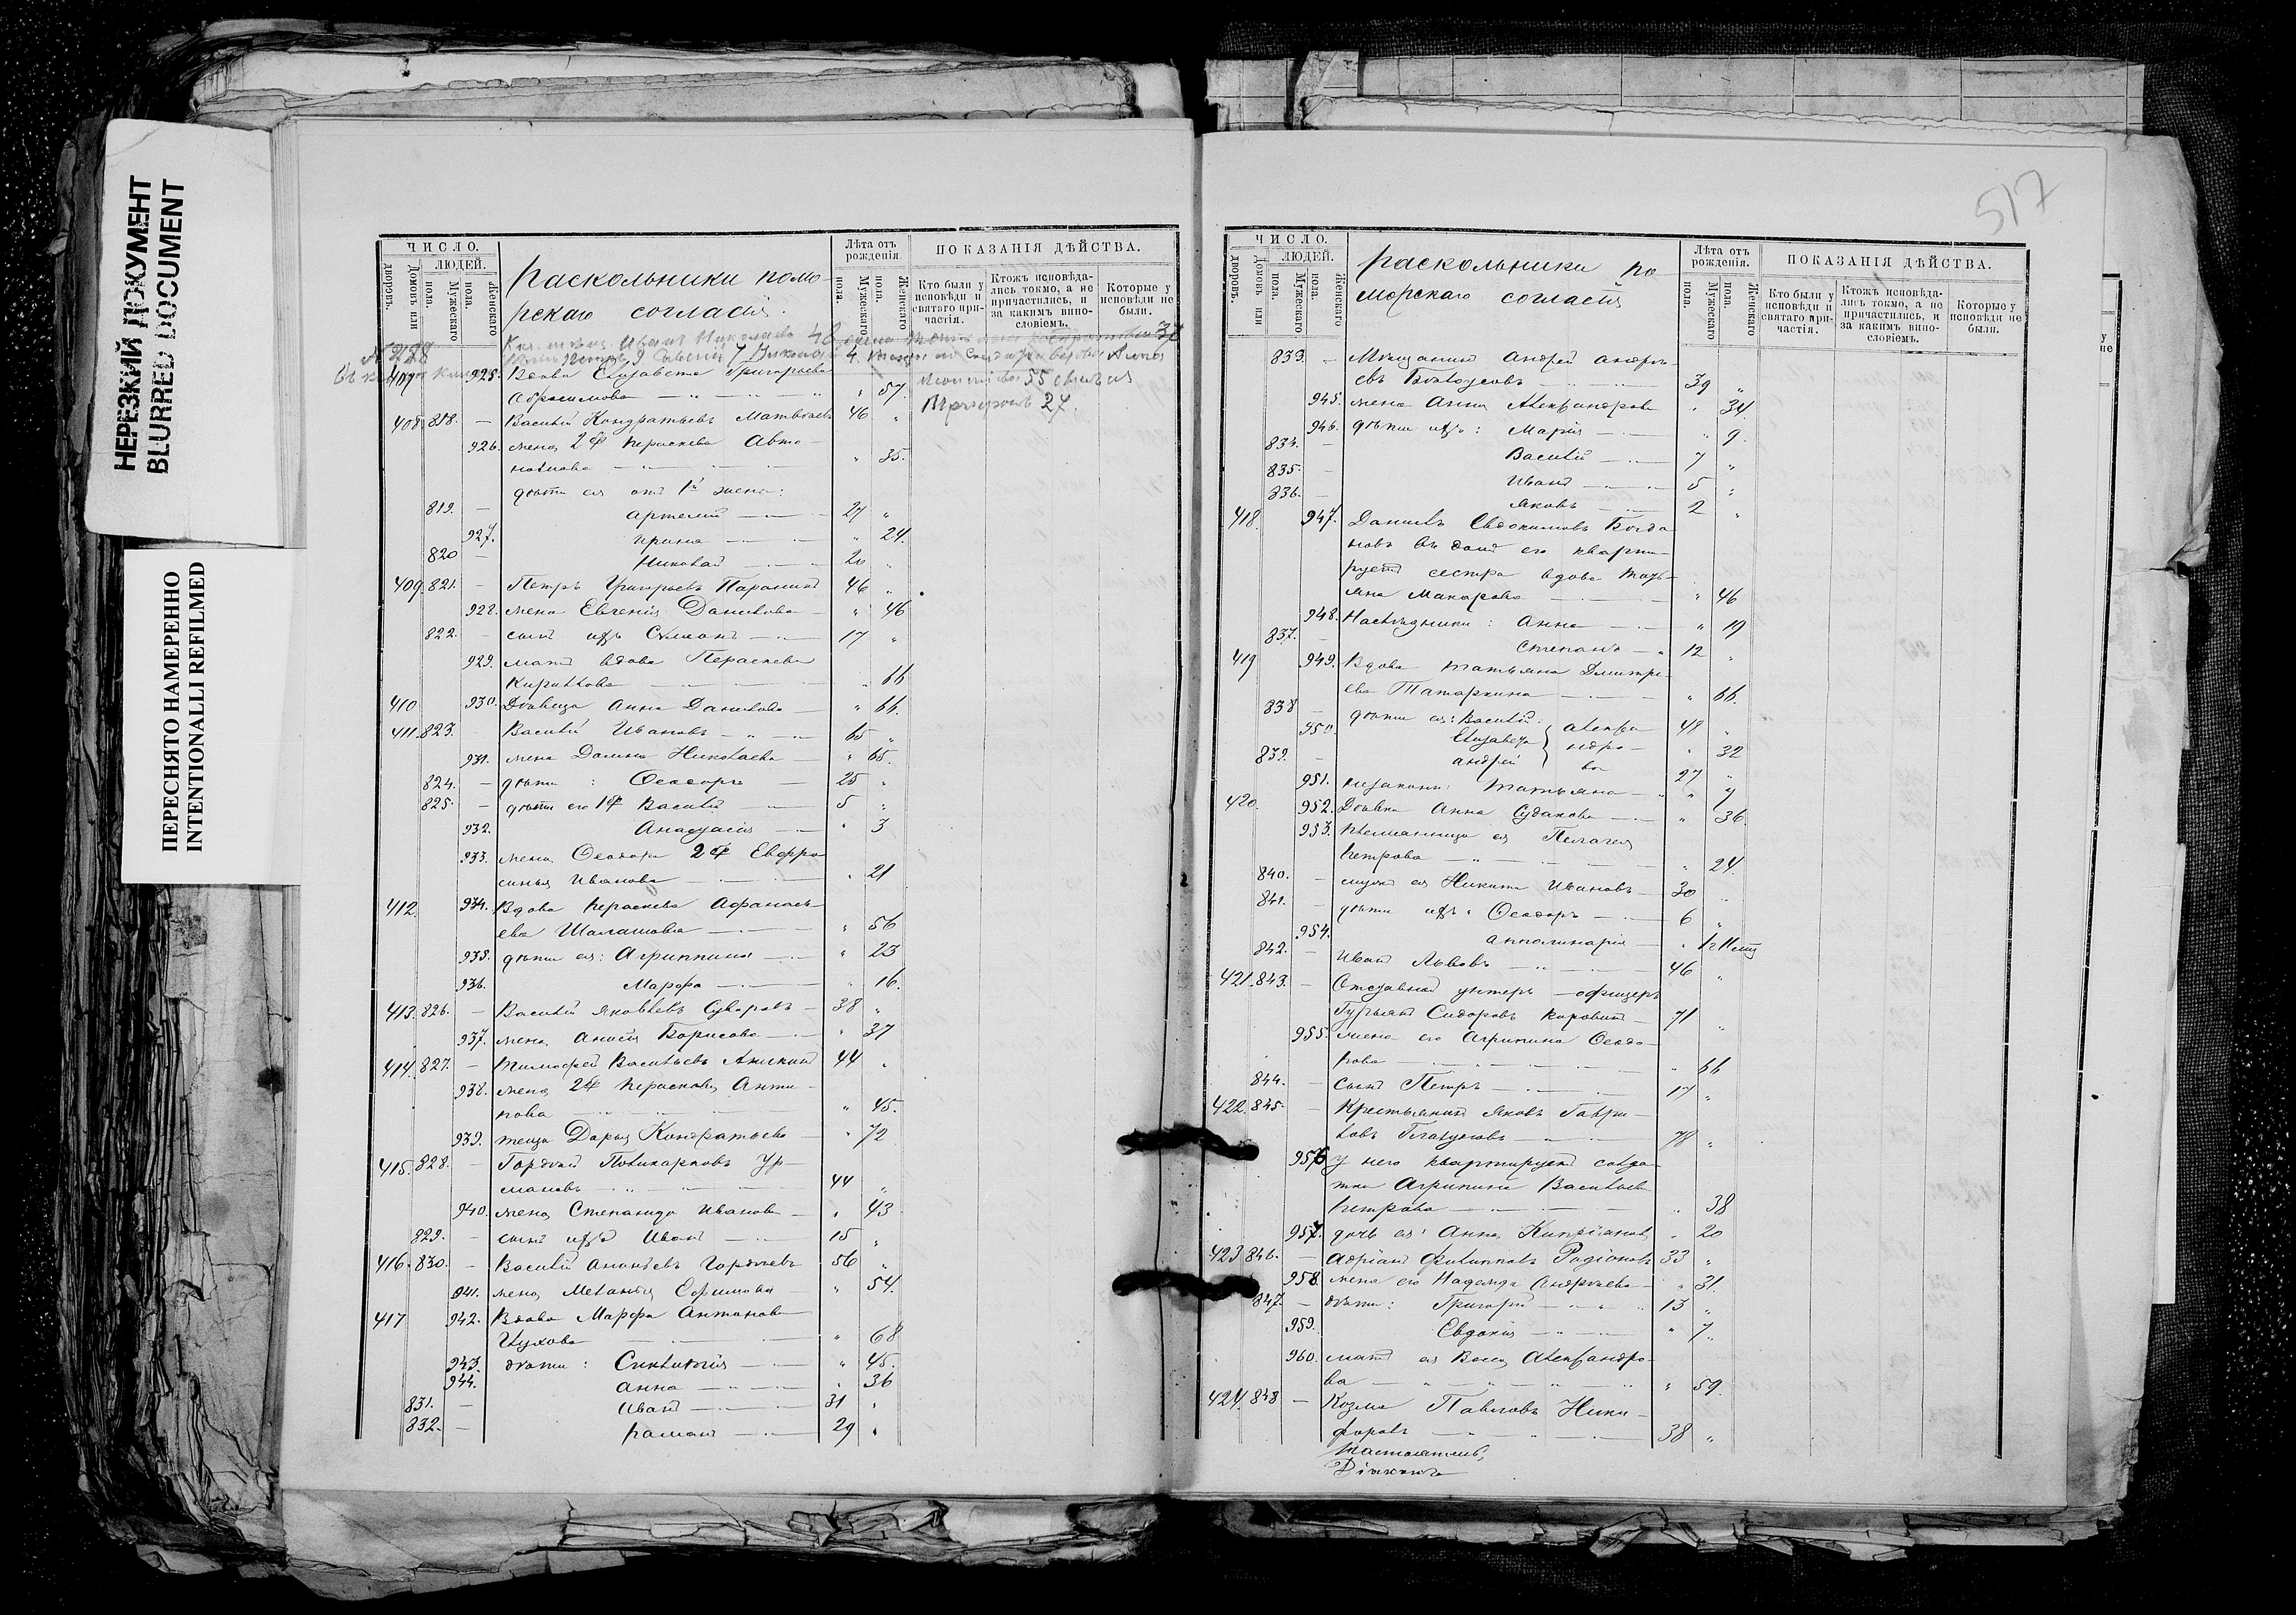 НЕРЕЗКИЙ ДОКУМЕНТ
BLURRED DOCUMENT
ПЕРЕСНЯТО НАМЕРЕННО
INTENTIONALLI REFILMED
ЧИСЛО.
ЛЮДЕЙ.
дворовъ.
Домовъ или
Мужескаго пола.
Женскаго пола.
Раскольники помо-
рскаго согласія.
Лѣта отъ рожденія.
Мужескаго пола.
Женскаго пола.
ПОКАЗАНІЯ ДѢЙСТВА.
Кто были у исповѣди и святаго причастія.
Ктожъ исповѣдались токмо, а не причастились, и за какимъ винословіемъ.
Которые у исповѣди не были.
407 925. Вдова Елизавета Григорьева
Абросимова 57.
408 818. — Василій Кондратьевъ Матвѣевъ 46 „
926. жена 2ф Параскева Авто-
номова „ 35.
дѣти ея отъ 1й жены:
819. — Артемій 27 „
927. Ирина „ 24.
820 — Николай 20 „
409. 821. — Петръ Григорьевъ Паранинъ 46 „
928. жена Евгенія Данилова „ 46
822. — сынъ ихъ Симеонъ 17 „
929. мать вдова Параскева
Кирилова „ 66
410 930. Дѣвица Анна Данилова „ 66.
411. 823. — Василій Ивановъ 65 „
931. жена Домна Николаева „ 65.
824. — дѣти: Ѳеодоръ 25 „
825. — дѣти его 1ф Василій 5 „
932. Анастасія „ 3
933. жена Ѳеодора 2ф Евфро-
синья Иванова „ 21
412. 934. Вдова Параскева Афанась-
ева Шалашова „ 56
935. дѣти ея: Агриппина „ 23
936. Марфа „ 16.
413. 826. — Василій Яковлевъ Суворовъ 38 „
937. жена Анисія Борисова „ 37
414. 827. — Тимофей Васильевъ Аникинъ 44 „
938. жена 2ф Параскева Анти-
пова „ 45.
939. теща Дарья Кондратьева „ 72
415. 828. — Гордѣй Поликарповъ Ур-
мановъ 44 „
940. жена Степанида Иванова „ 43
829. — сынъ ихъ Иванъ 15 „
416. 830. — Василій Ананьевъ Гордѣевъ 56 „
941. жена Меланія Ефимова „ 54.
417 942. Вдова Марфа Антонова
Цухова „ 68
943. дѣти: Синклитикія „ 45.
944. Анна „ 36
831. — Иванъ 31 „
832. — Романъ 29 „
517
ЧИСЛО.
ЛЮДЕЙ.
дворовъ.
Домовъ или
Мужескаго пола.
Женскаго пола.
Раскольники по-
морскаго согласія
Лѣта отъ рожденія.
Мужескаго пола.
Женскаго пола.
ПОКАЗАНІЯ ДѢЙСТВА.
Кто были у исповѣди и святаго причастія.
Ктожъ исповѣдались токмо, а не причастились, и за какимъ винословіемъ.
Которые у исповѣди не были.
833. — Мѣщанинъ Андрей Андре-
евъ 39 „
945. жена Анна Александрова „ 34.
946. дѣти ихъ: Марія „ 9.
834. — Василій 7 „
835. — Иванъ 5 „
836. — Яковъ 2 „
418. 947. Даніилъ Евдокимовъ Богда-
новъ въ домѣ его кварти-
руетъ сестра вдова Тать-
яна Макарова „ 46
948. Наслѣдники: Анна „ 19
837. — Степанъ 12 „
419 949. Вдова Татьяна Дмитрі-
ева Татаркина „ 66.
838 — дѣти ея: Василій 48 „
950. Елизавета } Алекса- „ 32
839. — Андрей ндро- 27 „
вы
951. Татьяна „ 7
420. 952. Дѣвка Анна Судакова „ 36.
953. Племянница ея Пелагея
Петрова „ 24.
840. — мужъ ея Никита Ивановъ 30 „
841. — дѣти ихъ: Ѳеодоръ 6 „
954. Апполинарія „
842. — Иванъ Львовъ 46 „
421. 843. — Отставной унтеръ-офицеръ
Гурьянъ Сидоровъ 71 „
955. жена его Агрипина Ѳеодо-
рова „ 66
844. — сынъ Петръ 17 „
422. 845. — Крестьянинъ Яковъ Гаври-
ловъ 78 „
956 у него квартируетъ солда-
тка Агрипина Васильева
Петрова „ 38
957. дочь ея: Анна Кипріанова „ 20
423 846. — Адріанъ Филипповъ Радіоновъ 33 „
958. жена его Надежда Андреева „ 31.
847. — дѣти: Григорій 13 „
959. Евдокія „ 7
960. мать ея Васса Александро-
ва „ 59.
424. 848 — Козма Павловъ Ники-
форовъ 38 „